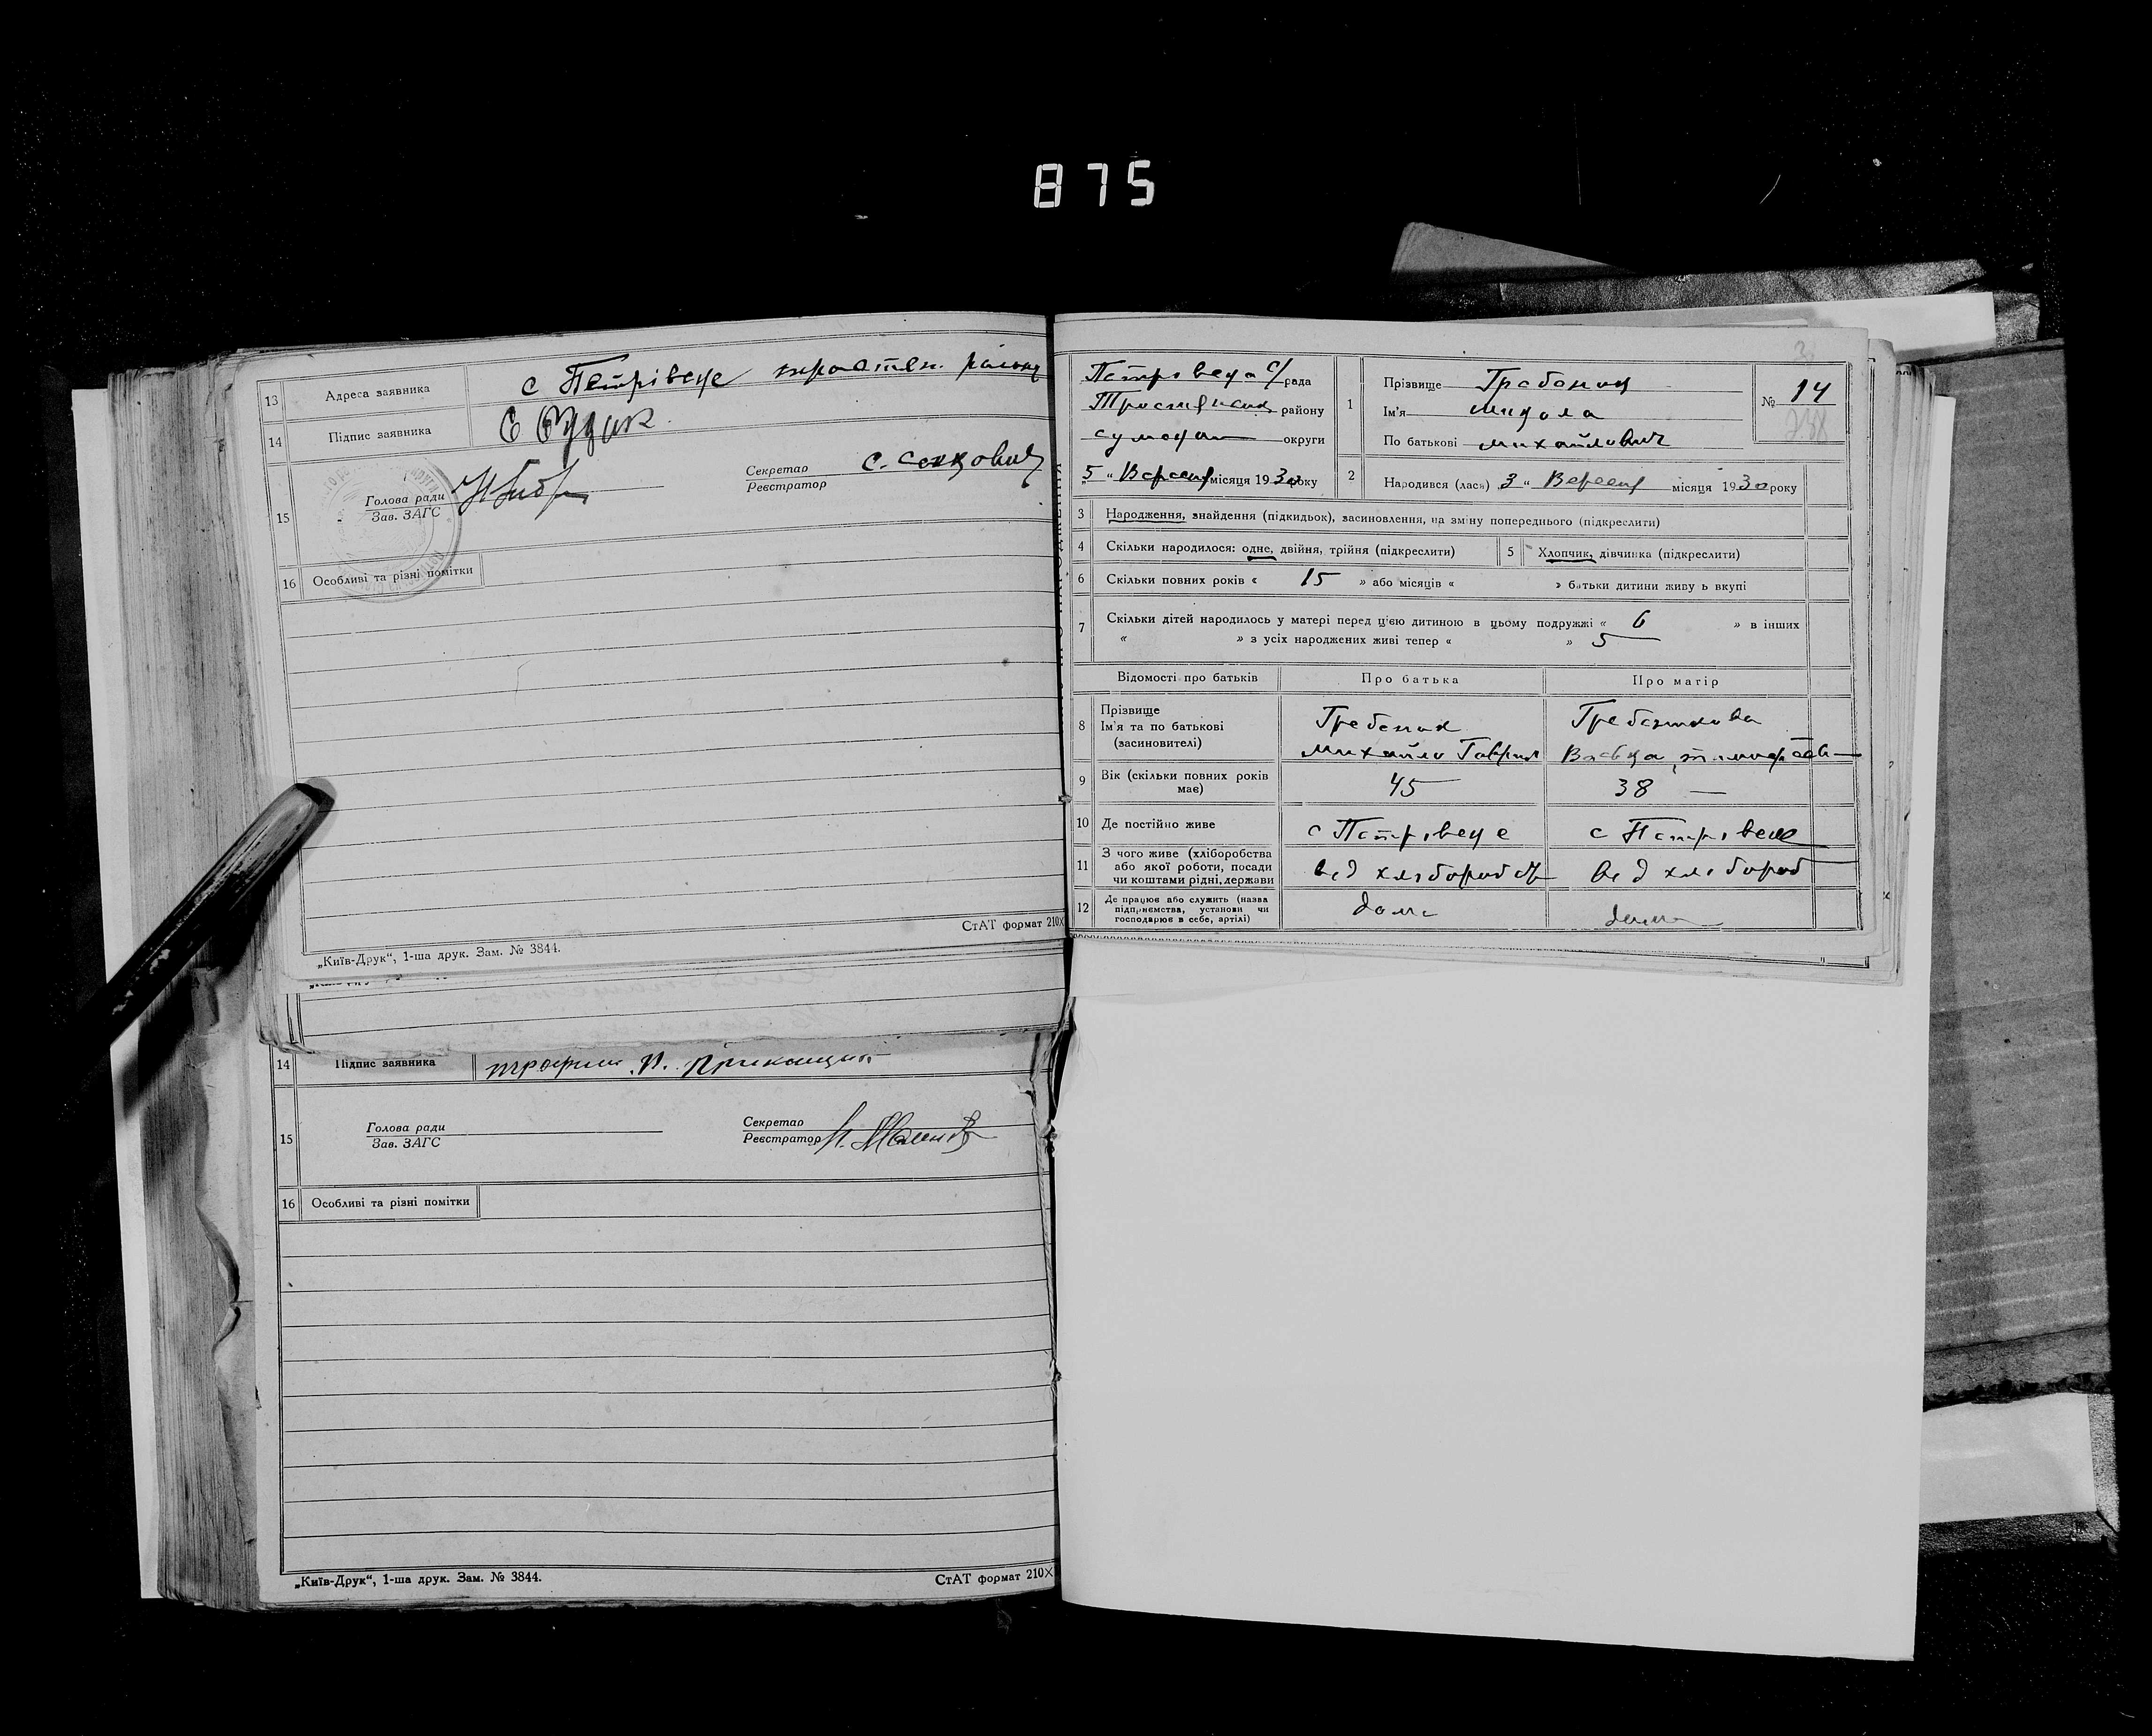 875
13 Адреса заявника с Петрівське тростян. району
14 Підпис заявника
15 Голова ради
Зав. ЗАГС
Секретар
Реєстратор
16 Особливі та різні помітки
„Київ-Друк“, 1-ша друк. Зам. № 3844.
СтАТ формат 210×
14 Підпис заявника
15 Голова ради
Зав. ЗАГС
Секретар
Реєстратор
16 Особливі та різні помітки
„Київ-Друк“, 1-ша друк. Зам. № 3844.
СтАТ формат 210×
с/рада
району
округи
5 “ Вересня місяця 1930 року
1 Прізвище Гребеник
Ім'я Микола
По батькові Михайлович
№ 14
2 Народився (лася) 3 “ Вересня місяця 1930 року
3 Народження, знайдення (підкидьок), засиновлення, на зміну попереднього (підкреслити)
4 Скільки народилося: одне, двійня, трійня (підкреслити)
5 Хлопчик, дівчинка (підкреслити)
6 Скільки повних років « 15 » або місяців « » батьки дитини живуть вкупі
7 Скільки дітей народилось у матері перед цією дитиною в цьому подружжі « 6 » в інших
« » з усіх народжених живі тепер « » 5
Відомості про батьків Про батька Про матір
8 Прізвище
Ім'я та по батькові
(засиновителі)
Гребеник
Михайло Гаврил
Гребеникова
9 Вік (скільки повних років має) 45 38 —
10 Де постійно живе
11 З чого живе (хліборобства
або якої роботи, посади
чи коштами рідні, держави
від хлібороб
від хлібороб
12 Де працює або служить (назва
підприємства, установи чи
господарює в себе, артілі)
дома
дома